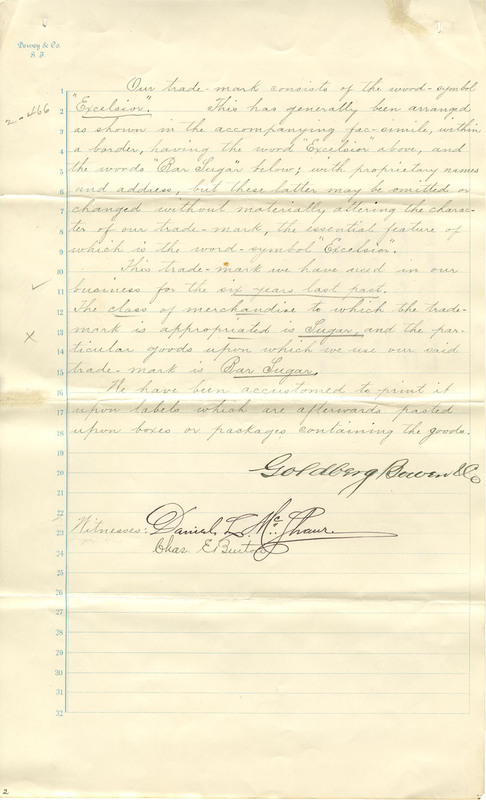 Dewey & Co.
S. F.
2-466
1 Our trade-mark consists of the word-symbol
2 "Excelsior". This has generally been arranged
3 as shown in the accompanying fac-simile, within
4 a border, having the word "Excelsior" above, and
5 the words "Bar Sugar" below; with proprietary names
6 and address, but these latter may be omitted or
7 changed without materially altering the charac-
8 ter of our trade-mark, the essential feature of
9 which is the word-symbol "Excelsior".
10 This trade-mark we have used in our
11 business for the six years last past.
12 The class of merchandise to which the trade-
13 mark is appropriated is Sugar, and the par-
14 ticular goods upon which we use our said
15 trade-mark is Bar Sugar.
16 We have been accustomed to print it
17 upon labels which are afterwards pasted
18 upon boxes or packages containing the goods.
19
20 Goldberg Bowen & Co
21
22
23 Witnesses: Daniel L. Mc
24 Chas. E.
25
26
27
28
29
30
31
32
2